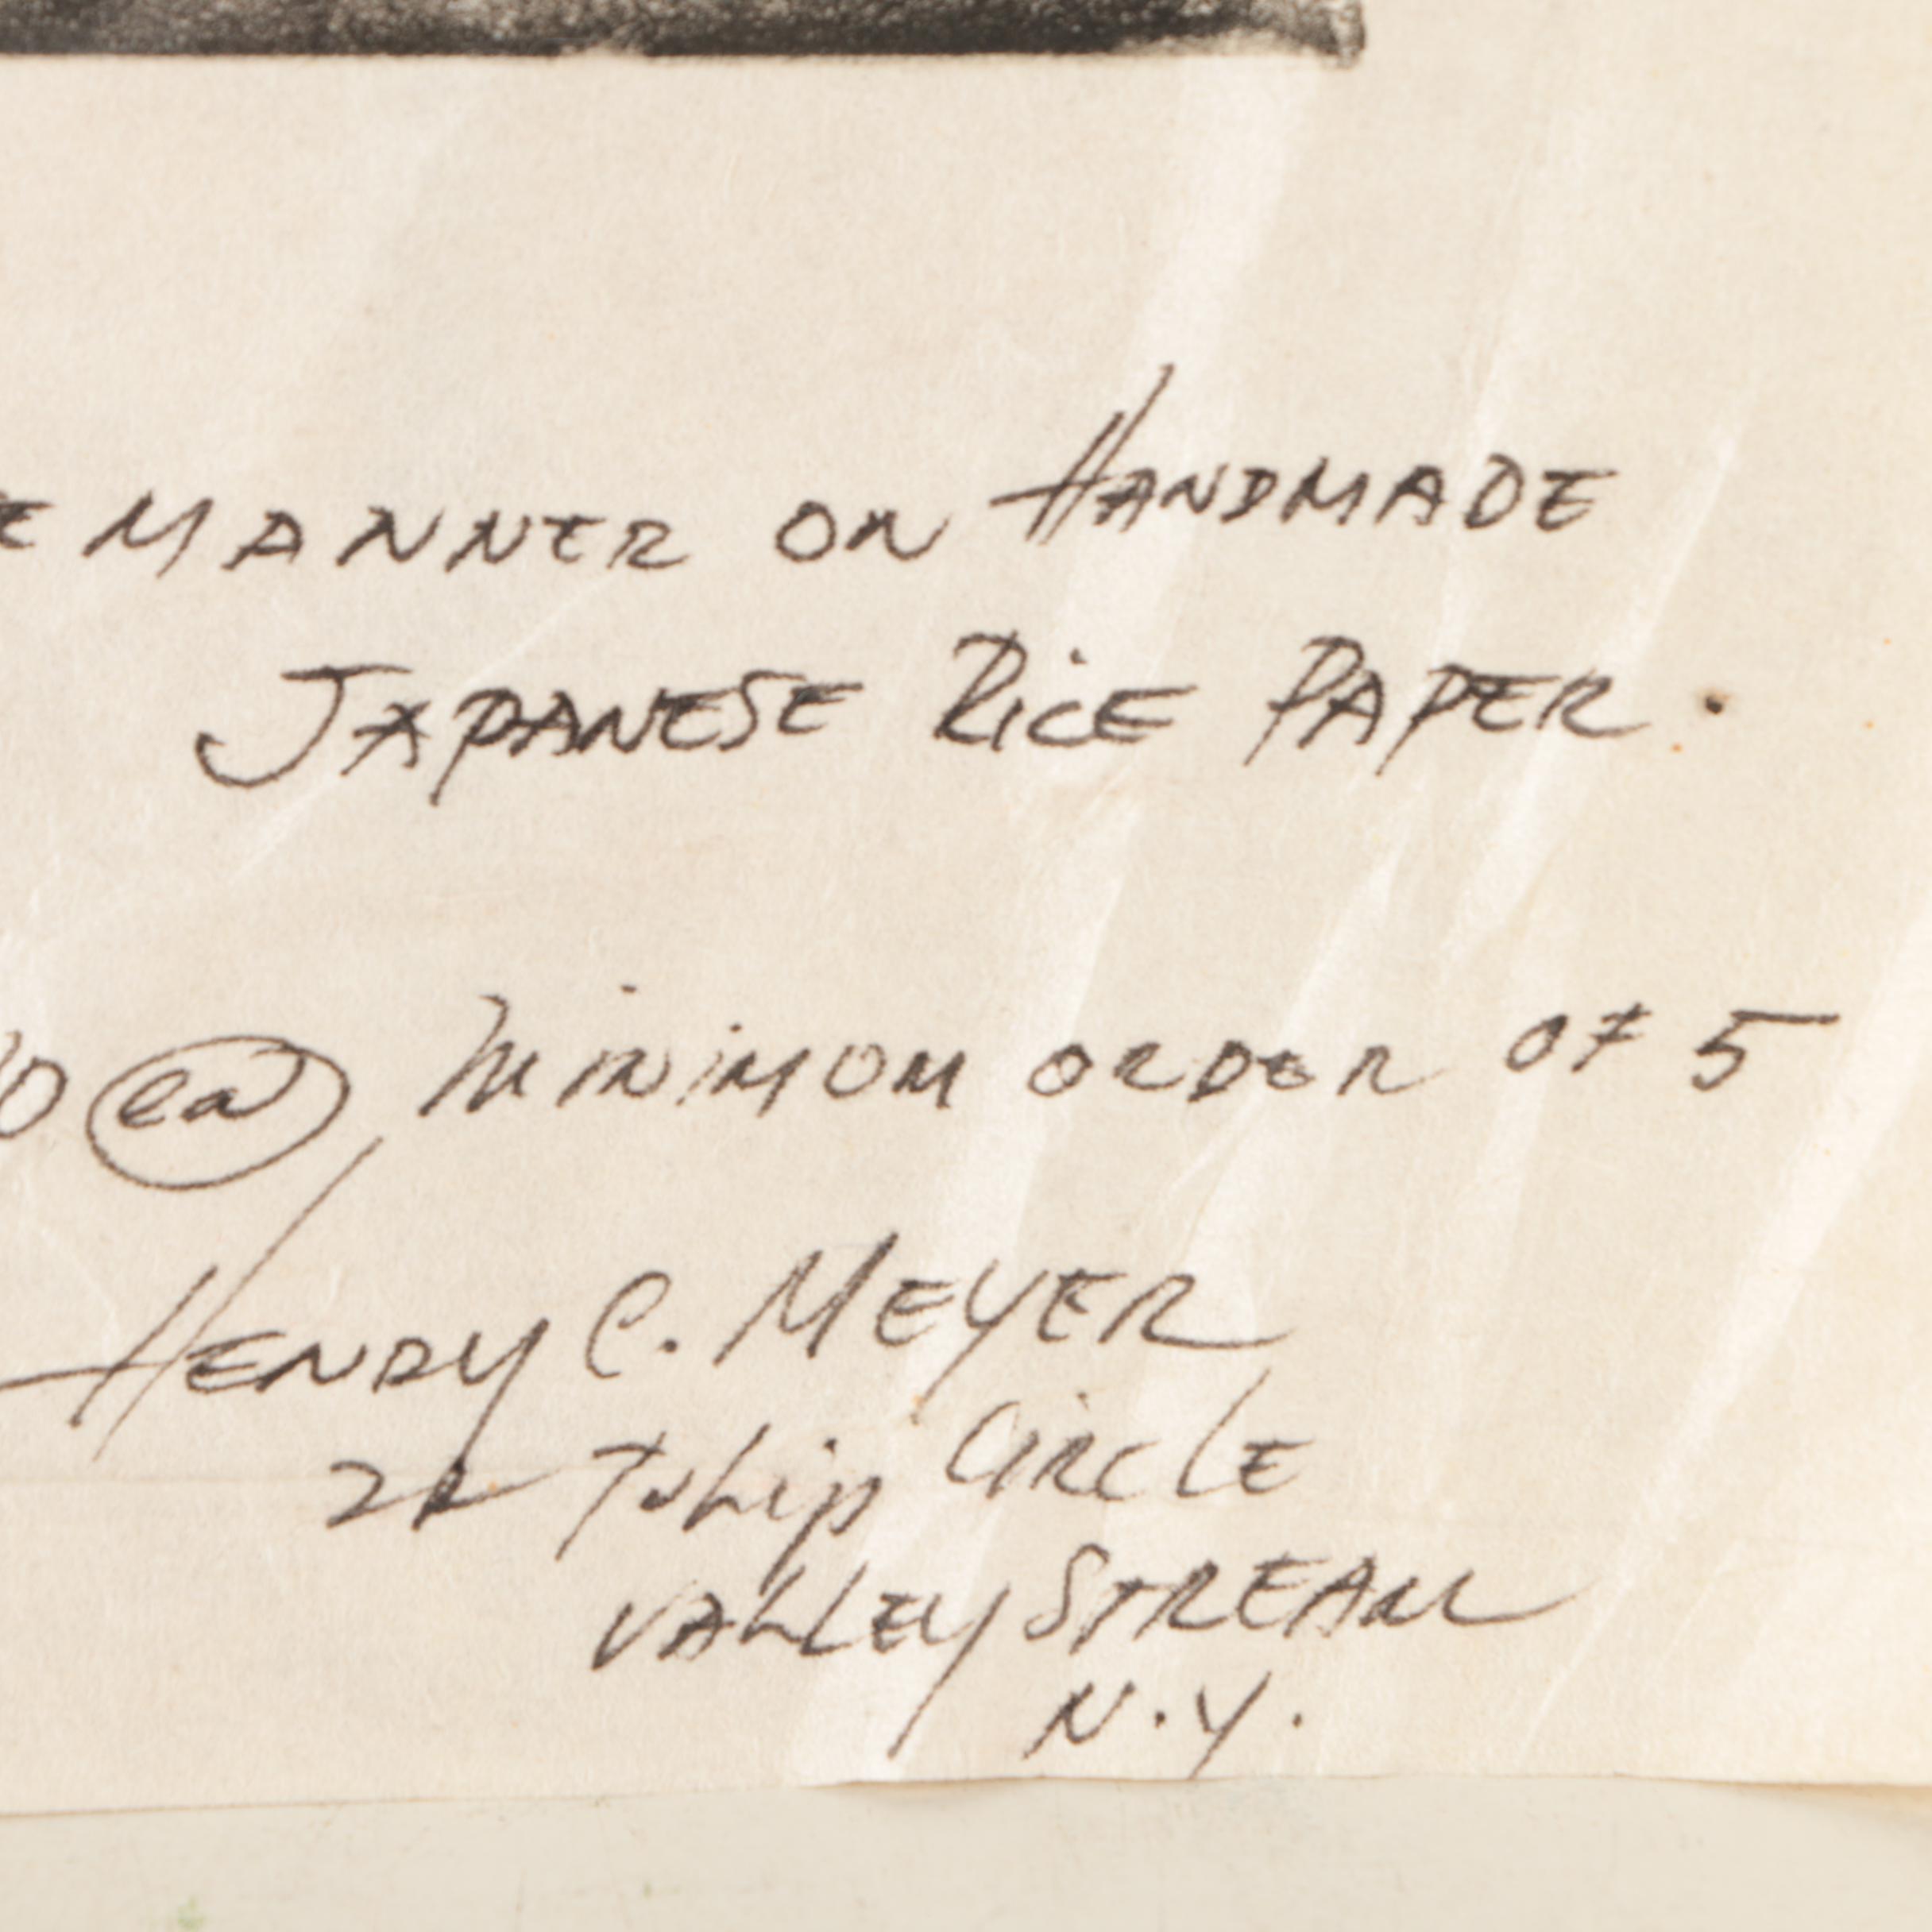 E MANNER ON HANDMADE
JAPANESE RICE PAPER.
0 ea MINIMUM ORDER OF 5
HENRY C. MEYER
Tulip CIRCLE
VALLEY STREAM
N.Y.